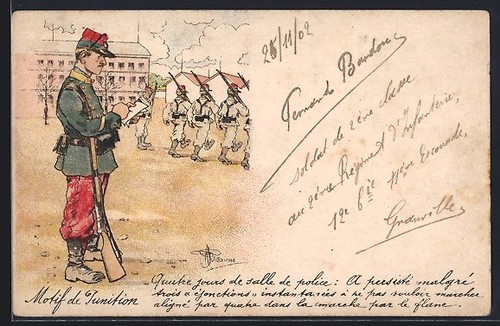 25/11/02
Fernand Bardou
soldat de 2ème classe
au 2ème Régiment d'Infanterie,
12e Cie 11ème Escouade,
Granville
Motif de Punition
Quatre jours de salle de police : A persisté malgré
trois "éjonctions" instantanées à ne pas vouloir marcher
aligné par quatre dans la marche par le flanc.